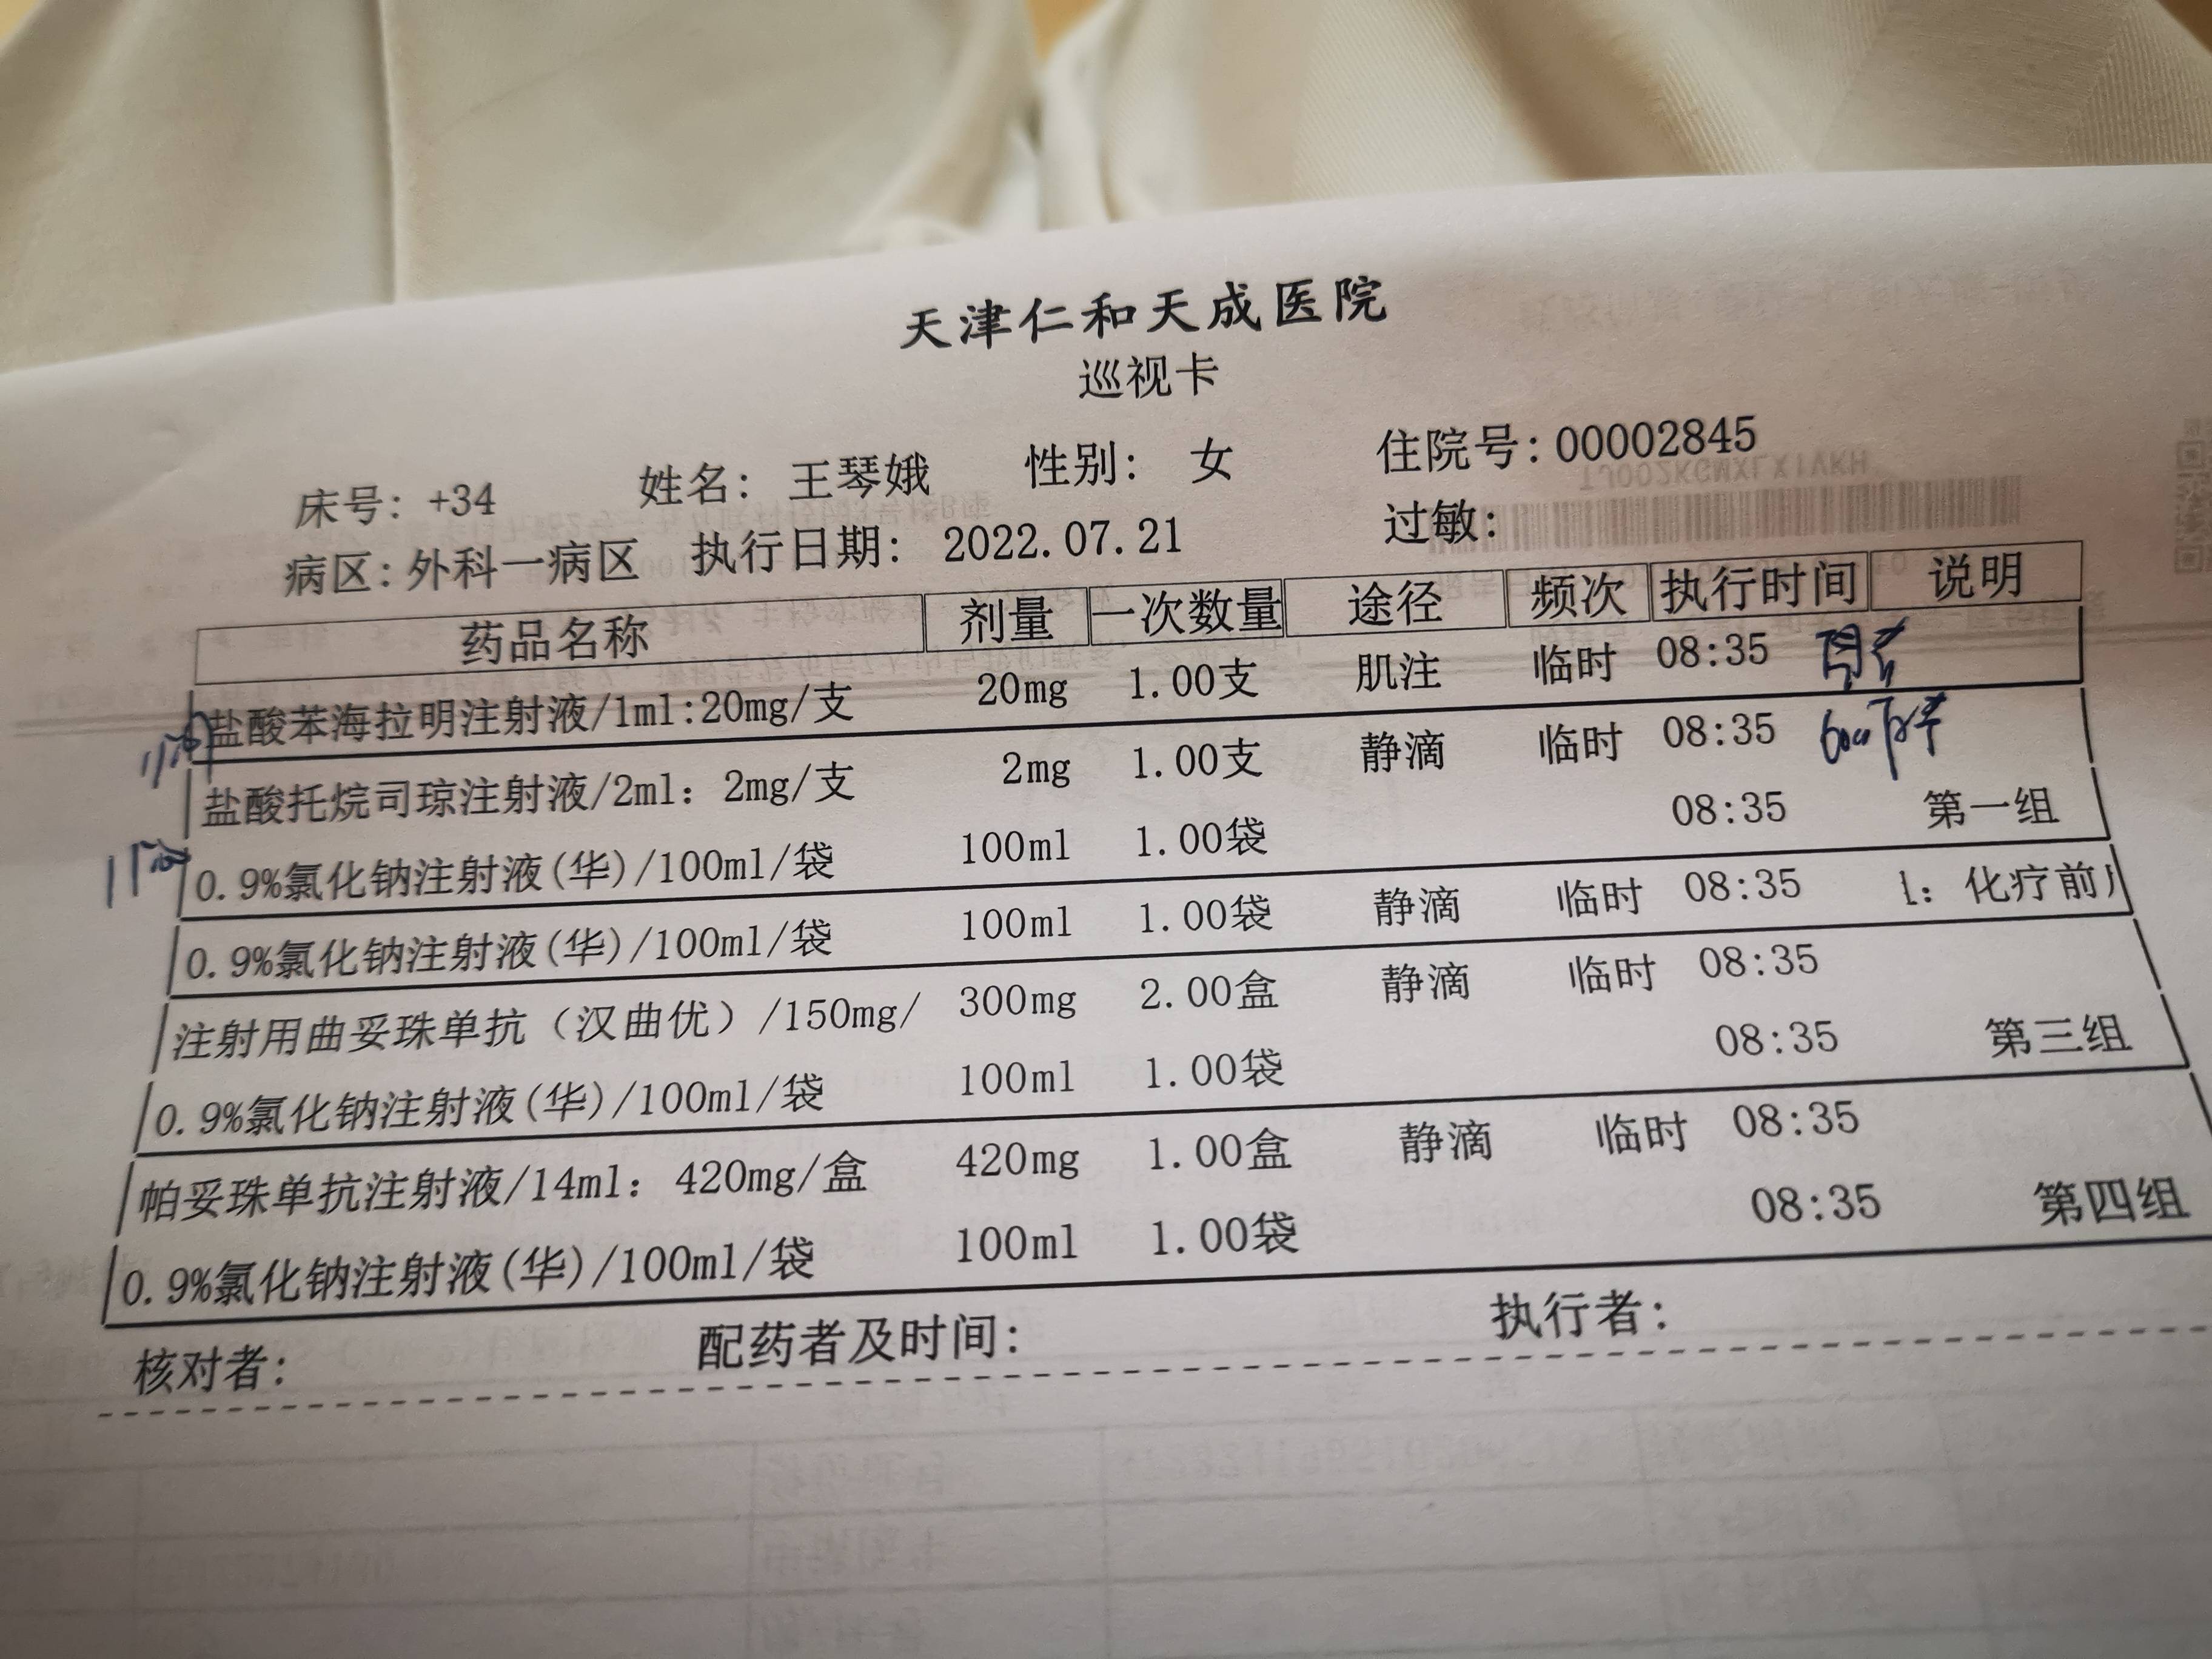 天津仁和天成医院
巡视卡
床号: +34 姓名: 王琴娥 性别: 女 住院号:00002845
病区:外科一病区 执行日期: 2022.07.21 过敏:
药品名称 剂量 一次数量 途径 频次 执行时间 说明
盐酸苯海拉明注射液/1ml:20mg/支 20mg 1.00支 肌注 临时 08:35
盐酸托烷司琼注射液/2ml: 2mg/支 2mg 1.00支 静滴 临时 08:35
0.9%氯化钠注射液(华)/100ml/袋 100ml 1.00袋 08:35 第一组
0.9%氯化钠注射液(华)/100ml/袋 100ml 1.00袋 静滴 临时 08:35 : 化疗前
注射用曲妥珠单抗（汉曲优）/150mg/ 300mg 2.00盒 静滴 临时 08:35
0.9%氯化钠注射液(华)/100ml/袋 100ml 1.00袋 08:35 第三组
帕妥珠单抗注射液/14ml: 420mg/盒 420mg 1.00盒 静滴 临时 08:35
0.9%氯化钠注射液(华)/100ml/袋 100ml 1.00袋 08:35 第四组
核对者: 配药者及时间: 执行者: